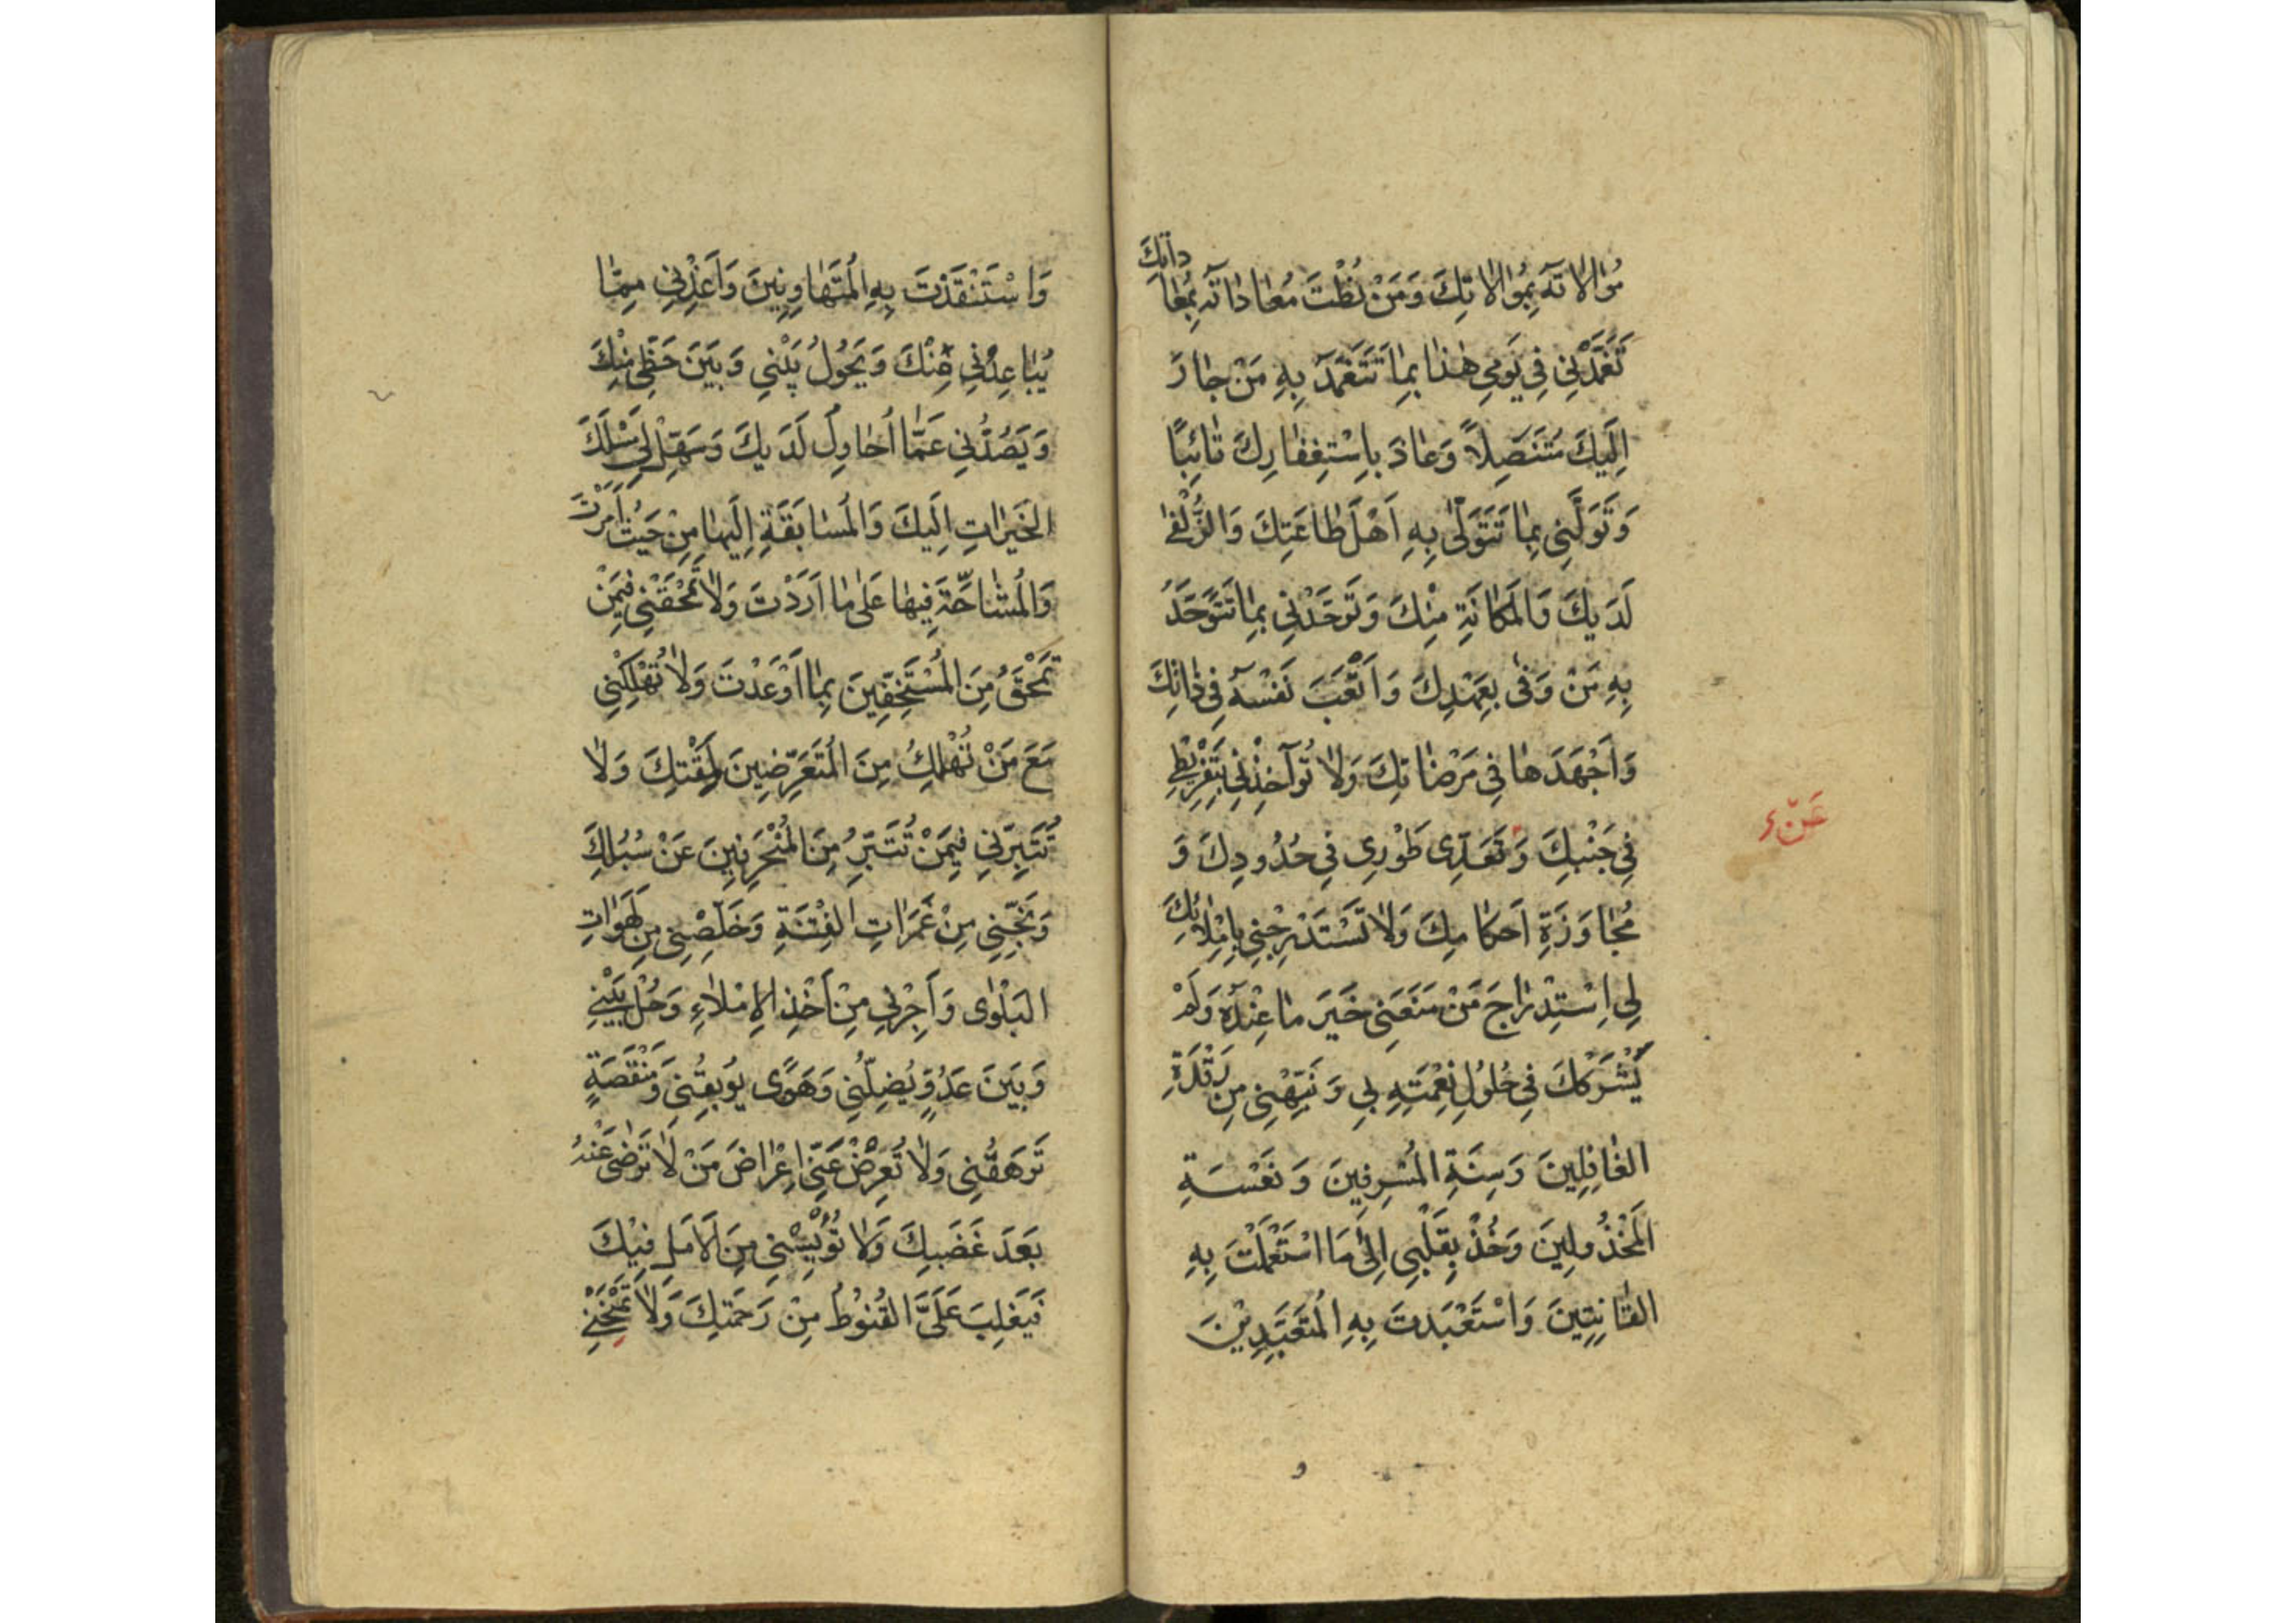 مُوٰالاٰتَهُ بِمُوٰالاٰتِكَ وَمَنْ نُطْتَ مُعٰادٰاتَهُ بِمُعٰادٰاتِكَ
تَغَمَّدْنِي فِي يَوْمِي هٰذٰا بِمٰا تَتَغَمَّدُ بِهِ مَنْ جٰارَ
اِلَيْكَ مُتَنَصِّلاً وَعٰاذَ بِاِسْتِغْفٰارِكَ تٰائِبًا
وَتَوَلَّنِي بِمٰا تَتَوَلّٰى بِهِ اَهْلَ طٰاعَتِكَ وَالزُّلْفٰى
لَدَيْكَ وَالْمَكٰانَةِ مِنْكَ وَتَوَحَّدْنِي بِمٰا تَتَوَحَّدُ
بِهِ مَنْ وَفٰى بِعَهْدِكَ وَاَتْعَبَ نَفْسَهُ فِي ذٰاتِكَ
وَاَجْهَدَهٰا فِي مَرْضٰاتِكَ وَلاٰ تُوآخِذْنِي بِتَفْرِيْطِي
فِي جَنْبِكَ وَتَعَدِّي طَوْرِي فِي حُدُودِكَ وَ
مُجٰاوَزَةِ اَحْكٰامِكَ وَلاٰ تَسْتَدْرِجْنِي بِاِمْلاٰئِكَ
لِي اِسْتِدْرٰاجَ مَنْ مَنَعَنِي خَيْرَ مٰا عِنْدَهُ وَلَمْ
يَشْرَكْكَ فِي حُلُولِ نِعْمَتِهِ لِي وَنَبِّهْنِي مِنْ رَقْدَةِ
الغٰافِلِينَ وَسِنَةِ الْمُسْرِفِينَ وَنَعْسَةِ
الْمَخْذُولِينَ وَخُذْ بِقَلْبِي اِلىٰ مَا اسْتَعْمَلْتَ بِهِ
القٰانِتِينَ وَاسْتَعْبَدتَ بِهِ الْمُتَعَبِّدِيْنَ
وَاسْتَنْقَذْتَ بِهِ الْمُتَهٰاوِنِينَ وَاَعِذْنِي مِمّٰا
يُبٰاعِدُنِي مِنْكَ وَيَحُولُ بَيْنِي وَبَيْنَ حَظِّي مِنْكَ
وَيَصُدُّنِي عَمّٰا اُحٰاوِلُ لَدَيكَ وَسَهِّلْ لِي مَسْلَكَ
الخَيْرٰاتِ اِلَيْكَ وَالْمُسٰابَقَةِ اِلَيهٰا مِنْ حَيْثُ اَمَرْتَ
وَالْمُشٰاحَّةَ فِيهٰا عَلىٰ مٰا اَرَدْتَ وَلاٰ تَمْحَقْنِي فِيمَنْ
تَمْحَقُ مِنَ الْمُسْتَخِفِّينَ بِمٰا اَوْعَدْتَ وَلاٰ تُهْلِكْنِي
مَعَ مَنْ تُهْلِكُ مِنَ الْمُتَعَرِّضِينَ لِمَقْتِكَ وَلاٰ
تُتَبِّرْنِي فِيمَنْ تُتَبِّرُ مِنَ الْمُنْحَرِفِينَ عَنْ سُبُلِكَ
وَنَجِّنِي مِنْ غَمَرٰاتِ الفِتْنَةِ وَخَلِّصْنِي مِنْ لَهَوٰاتِ
البَلْوٰى وَاَجِرْنِي مِنْ اَخْذِ الاِمْلاٰءِ وَحُلْ بَيْنِي
وَبَيْنَ عَدُوٍّ يُضِلُّنِي وَهَوًى يُوبِقُنِي وَمَنْقَصَةٍ
تَرْهَقُنِي وَلاٰ تُعْرِضْ عَنِّي اِعْرٰاضَ مَنْ لاٰ تَرْضٰى عَنْهُ
بَعْدَ غَضَبِكَ وَلاٰ تُؤْيِسْنِي مِنَ الاَمَلِ فِيْكَ
فَيَغْلِبَ عَلَيَّ القُنُوْطُ مِنْ رَحْمَتِكَ وَلاٰ تَمْنَحْنِي